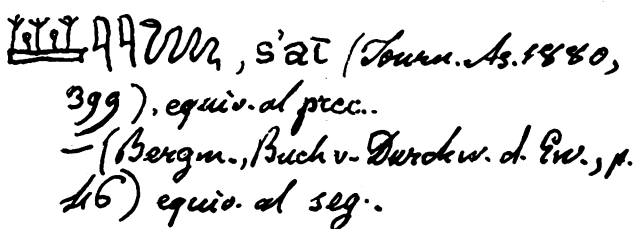 , s'aī (Journ. As. 1880,
399). equiv. al prec..
– (Bergm., Buch v. Durchw. d. Ew., p.
46) equiv. al seg..